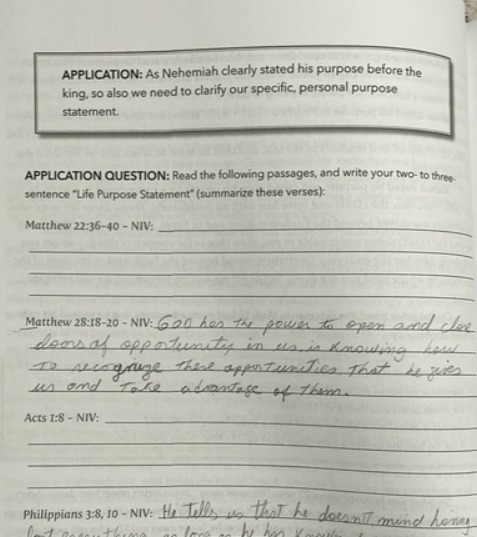 APPLICATION: As Nehemiah clearly stated his purpose before the
king, so also we need to clarify our specific, personal purpose
statement.
APPLICATION QUESTION: Read the following passages, and write your two- to three-
sentence "Life Purpose Statement" (summarize these verses):
Matthew 22:36-40 – NIV:
Matthew 28:18-20 – NIV: God has the power to open and close
doors of opportunity in us is knowing how
to recognize these opportunities that he gives
us and take advantage of them.
Acts 1:8 – NIV:
Philippians 3:8, 10 – NIV: He tells us that he doesn't mind having
lost everything as long as he has